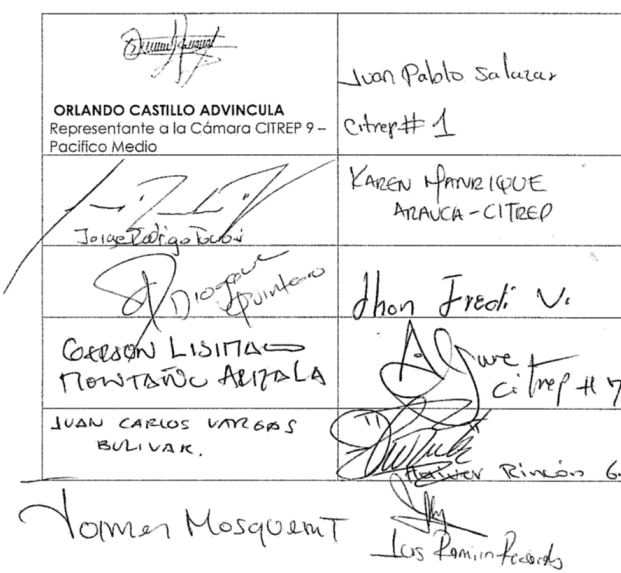 ORLANDO CASTILLO ADVINCULA
Representante a la Cámara CITREP 9 –
Pacifico Medio
Juan Pablo Salazar
Citrep # 1
Jorge Rodrigo Tovar
KAREN MANRIQUE
ARAUCA - CITREP
Diogenes
Quintero
Jhon Fredi V.
GERSON LISIMACO
MONTAÑO ARIZALA
Citrep # 7
JUAN CARLOS VARGAS
BOLIVAR.
Rincón G.
James Mosquera T
Luis Ramiro Ricardo